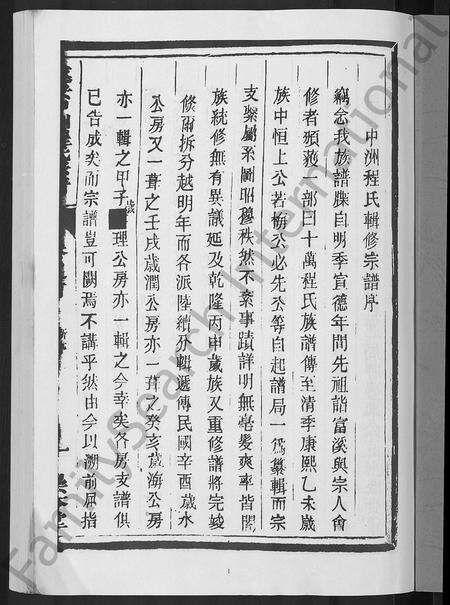 中洲程氏輯修宗譜序
竊念我族譜牒自明季宣德年間先祖詣富溪與宗人會
修者頒疏一部曰十萬程氏族譜傳至清季康熙乙未歲
族中恒上公若梅公必先公等自起譜局一為纂輯而宗
支縈屬系圖昭穆秩然不紊事蹟詳明無毫髮爽率皆闔
族統修無有異議延及乾隆丙申歲族又重修譜將完竣
條爾拆分越明年而各派陸續分輯遞傳民國辛酉歲水
公房又一葺之壬戌歲潤公房亦一葺之癸亥歲海公房
亦一輯之甲子歲理公房亦一輯之今幸矣各房支譜俱
已告成矣而宗譜豈可闕焉不講乎然由今以溯前屈指
FamilySearch International